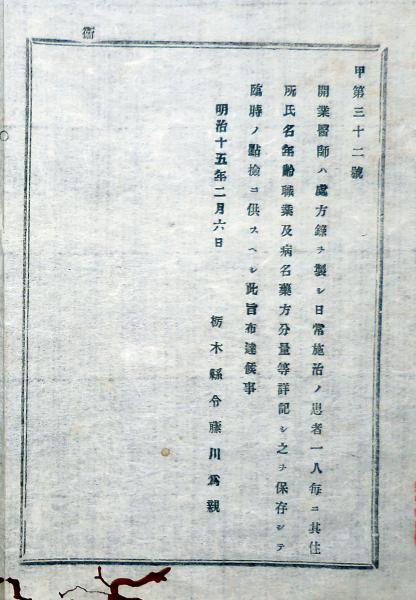 衛
甲第三十二號
開業醫師ハ處方錄ヲ製シ日常施治ノ患者一人每ニ其住
所氏名年齡職業及病名藥方分量等詳記シ之ヲ保存シテ
臨時ノ點檢ニ供スヘシ此旨布達候事
明治十五年二月六日
栃木縣令藤川爲親